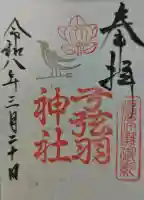 奉拝
弓弦羽
神社
令和八年三月二十日